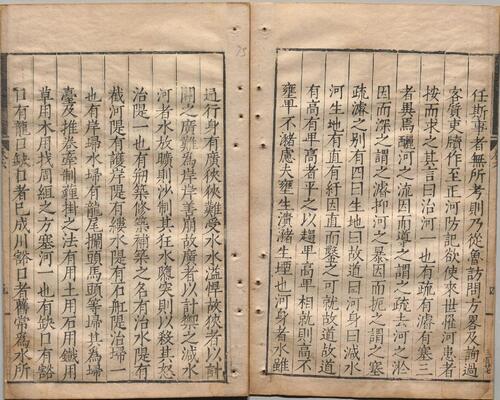 任斯事者無所考則乃從魯訪問方畧及詢過
客質吏牘作至正河防記欲使來世罹河患者
按而求之其言曰治河一也有疏有濬有塞三
者異焉釃河之流因而導之謂之疏去河之淤
因而深之謂之濬抑河之暴因而扼之謂之塞
疏濬之别有四曰生地曰故道曰河身曰減水
河生地有直有紆因直而鑿之可就故道故道
有高有卑高者平之以趨卑高卑相就則高不
壅卑不瀦慮夫壅生潰瀦生堙也河身者水雖
通行身有廣狹狹難受水水溢悍故狹者以計
闢之廣難為岸岸善崩故廣者以計禦之減水
河者水放曠則以制其狂水隳突則以殺其怒
治隄一也有剏築修築補築之名有治水隄有
截河隄有護岸隄有縷水隄有石船隄治埽一
也有岸埽水埽有龍尾攔頭馬頭等埽其為埽
臺及推卷牽制薶掛之法有用土用石用鐵用
草用木用杙用絙之方塞河一也有缺口有豁
口有龍口缺口者已成川豁口者舊常為水所